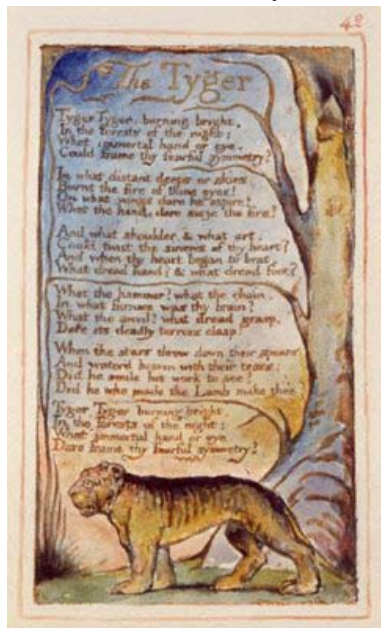 42
The Tyger
Tyger Tyger, burning bright,
In the forests of the night;
What immortal hand or eye,
Could frame thy fearful symmetry?
In what distant deeps or skies
Burnt the fire of thine eyes?
On what wings dare he aspire?
What the hand, dare sieze the fire?
And what shoulder, & what art,
Could twist the sinews of thy heart?
And when thy heart began to beat,
What dread hand? & what dread feet?
What the hammer? what the chain,
In what furnace was thy brain?
What the anvil? what dread grasp,
Dare its deadly terrors clasp!
When the stars threw down their spears
And water'd heaven with their tears:
Did he smile his work to see?
Did he who made the Lamb make thee?
Tyger Tyger burning bright,
In the forests of the night:
What immortal hand or eye,
Dare frame thy fearful symmetry?